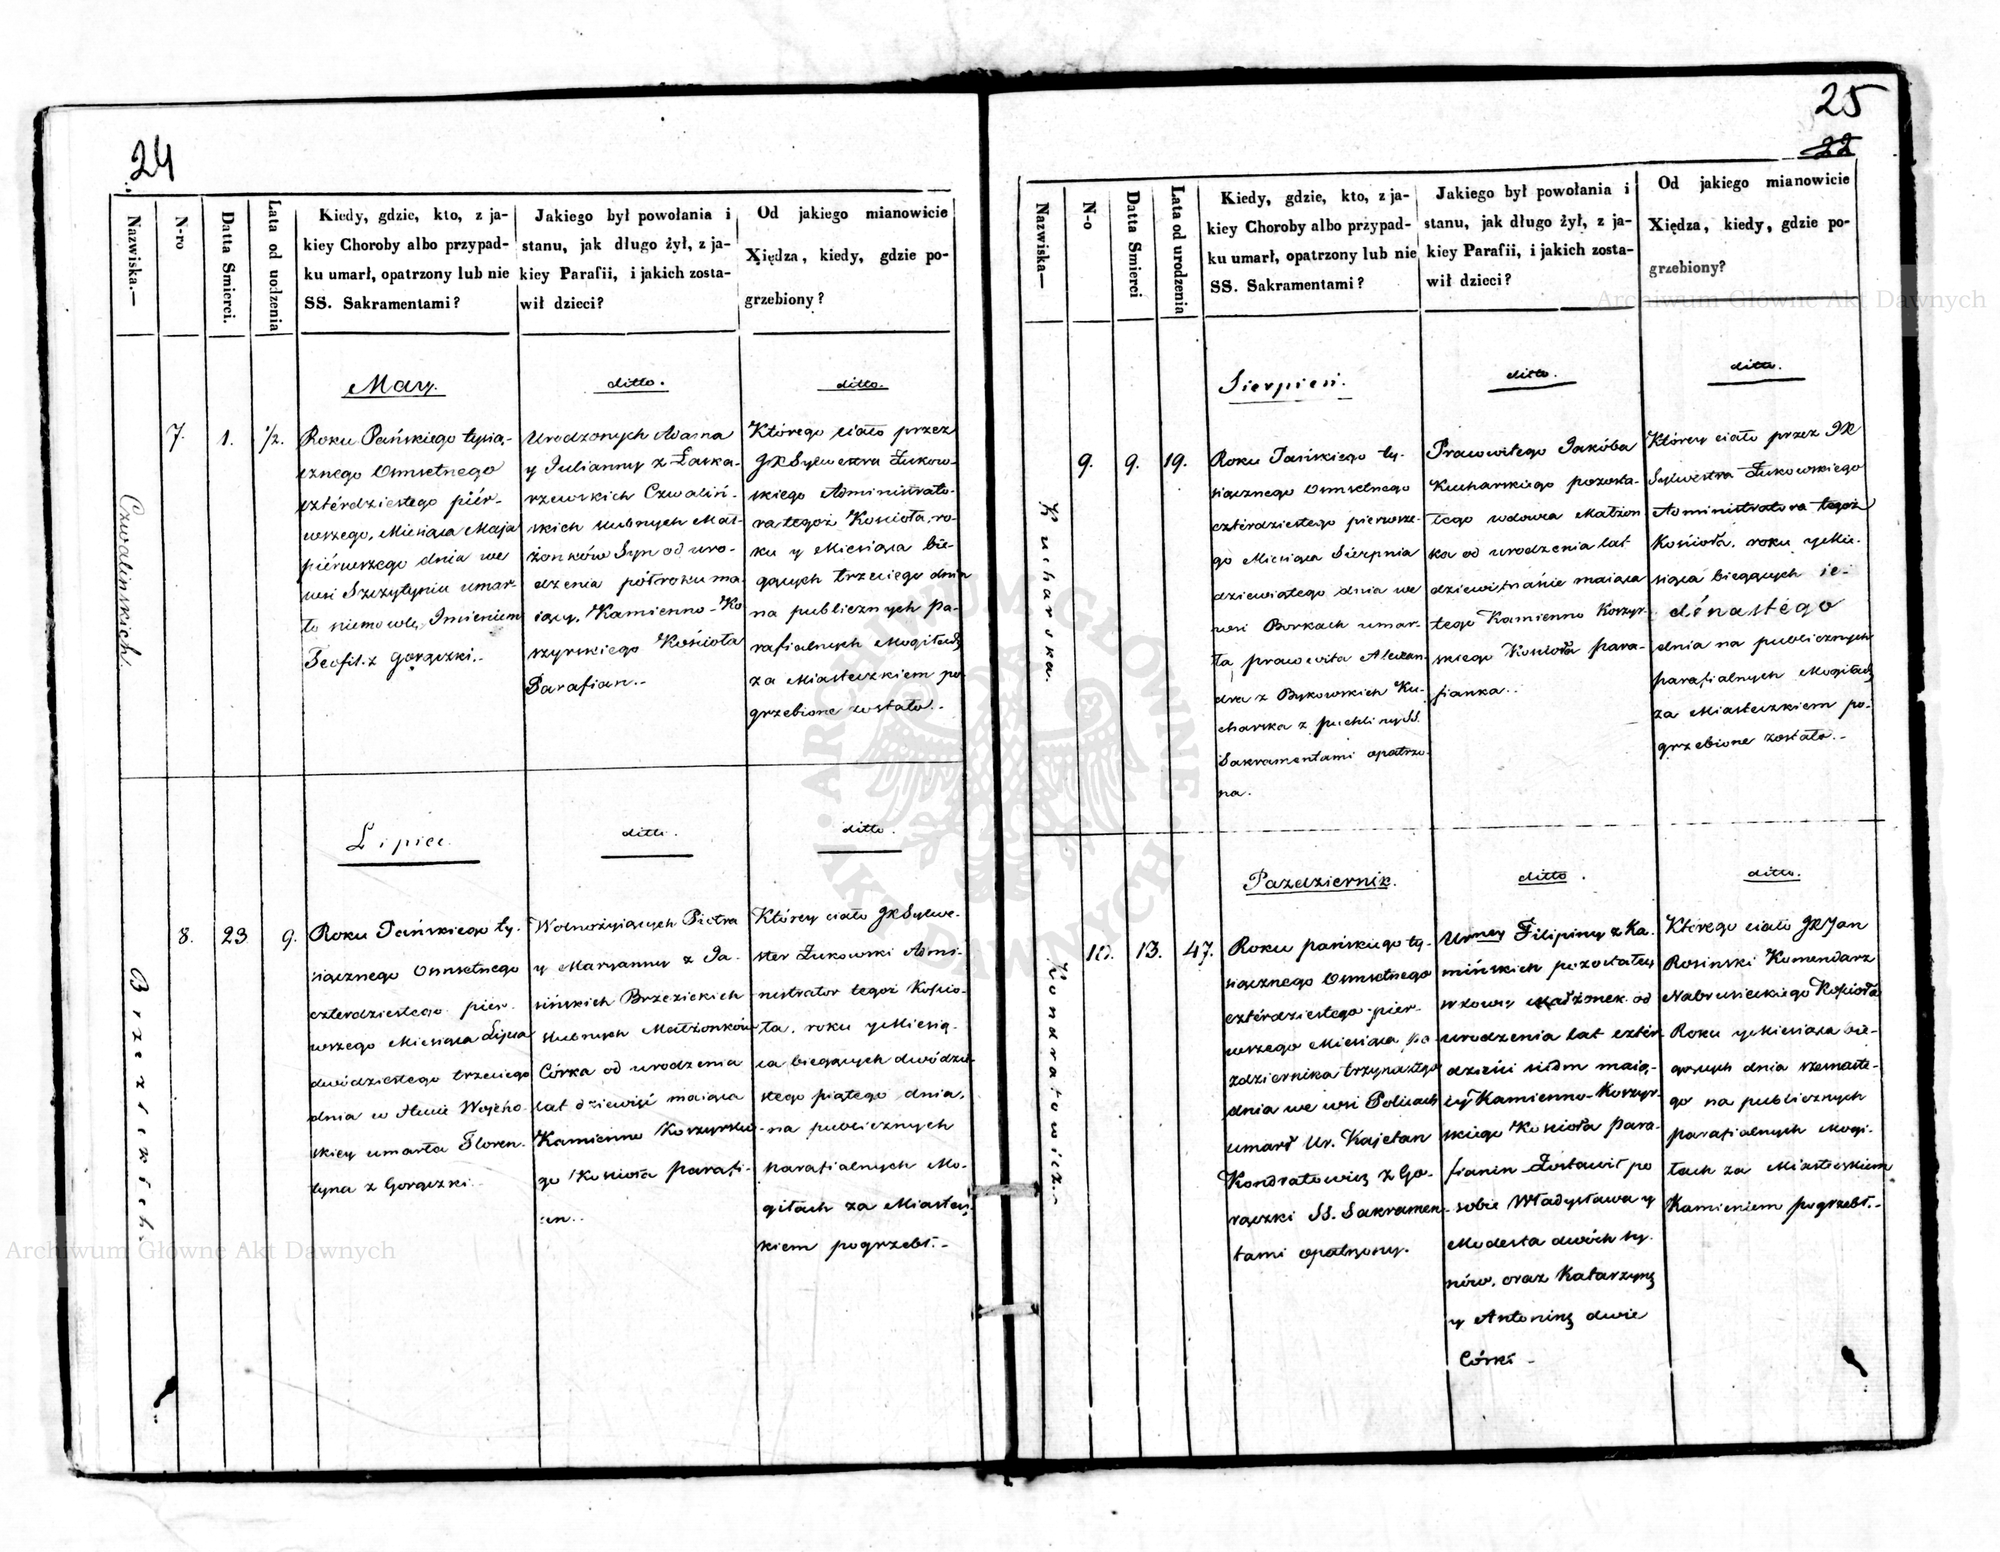 24
Nazwiska.—
N-ro
Datta Smierci.
Lata od uodzenia
Kiedy, gdzie, kto, z ja-
kiey Choroby albo przypad-
ku umarł, opatrzony lub nie
SS. Sakramentami?
Jakiego był powołania i
stanu, jak długo żył, z ja-
kiey Parafii, i jakich zosta-
wił dzieci?
Od jakiego mianowicie
Xiędza, kiedy, gdzie po-
grzebiony?
Czwalinskich.
7.
1.
1/2.
May.
Roku Pańskiego tysią-
cznego Osmsetnego
cztérdziestego piér-
wszego, Miesiąca Maja
piérwszego dnia we
wsi Szczytyniu umar-
ło niemowle, Imieniem
Teofil. z gorączki..
ditto.
Urodzonych Adama
y Julianny z Łaska-
rzewskich Czwaliń-
skich slubnych Mał-
żonków Syn od uro-
dzenia półroku ma-
iący, Kamienno-Ko
rzyrskiego Kościoła
Parafian.-
ditto.
Którego ciało przez
JX Sylwestra Żukow-
skiego Administrato-
ra tegoż Kościoła, ro-
ku y Miesiąca bie-
gących trzeciego dnia
na publicznych pa-
rafialnych Mogiłach
za Miasteczkiem po-
grzebione zostało.-
Brzezickich.
8.
23
9.
Lipiec.
Roku Pańskiego ty-
siącznego Osmsetnego
czterdziestego pier-
wszego Miesiąca Lipca
dwódziestego trzeciego
dnia w Hucie Woycho-
skiey umarła Floren-
tyna z Gorączki..
ditto.
Wolnożyiących Piotra
y Maryanny z Ja-
sińskich Brzezickich
slubnych Małżonków
Córka od urodzenia
lat dziewięć maiąca
Kamienno Korzyrskie-
go Kościoła parafi-
an..
ditto.
Którey ciało JX Sylwe-
ster Żukowski Admi-
nistrator tegoż Kościo-
ła, roku y Miesią-
ca biegących dwódzie-
stego piątego dnia,
na publicznych
parafialnych Mo-
giłach za Miastecz-
kiem pogrzebł.-
25
22
Nazwiska—
N-o
Datta Smierci
Lata od urodzenia
Kiedy, gdzie, kto, z ja-
kiey Choroby albo przypad-
ku umarł, opatrzony lub nie
SS. Sakramentami?
Jakiego był powołania i
stanu, jak długo żył, z ja-
kiey Parafii, i jakich zosta-
wił dzieci?
Od jakiego mianowicie
Xiędza, kiedy, gdzie po-
grzebiony?
Kucharska.
9.
9.
19.
Sierpień.
Roku Pańskiego ty-
siącznego Osmsetnego
cztérdziestego pierwsze-
go Miesiąca Sierpnia
dziewiątego dnia we
wsi Borkach umar-
ła, prawowita Alexan-
dra z Bykowskich Ku-
charska z puchliny SS.
Sakramentami opatrzo-
na.
ditto.
Prawowitego Jakóba
Kucharskiego pozosta-
łego wdowca Małżon
ka od urodzenia lat
dziewiętnaście maiąca
tego Kamienno Korzyr-
skiego Kościoła para-
fianka..
ditto.
Którey ciało przez JX
Sylwestra Żukowskiego
Administratora tegoż
Kościoła, roku y Mie-
siąca biegących ie-
dénastego
dnia na publicznych
parafialnych Mogiłach
za Miasteczkiem po-
grzebione zostało.-
Kondratowicz.-
10.
13.
47.
Pazdziernik.
Roku pańskiego ty-
siącznego Osmsetnego
cztérdziestego pier-
wszego Miesiąca Pa
zdziernika trzynastego
dnia we wsi Policach
umarł Ur. Kajetan
Kondratowicz z Go-
rączki SS. Sakramen-
tami opatrzony.
ditto.
Urney Filipiny z Ka-
mińskich pozostałey
wdowy małżonek od
urodzenia lat cztér
dzieści siédm maią-
cy Kamienno-Korzyr-
skiego Kościoła para-
fianin Zostawił po
sobie Władysława y
Modesta dwóch sy-
nów, oraz Katarzynę
y Antoninę dwie
Córki -
ditto.
Którego ciało JX Jan
Rosinski Komendarz
Nabrusieckiego Kościoła
Roku y Miesiąca bie-
gących dnia szesnaste-
go na publicznych
parafialnych Mogi-
łach za Miasteczkiem
Kamieniem pogrzebł.-
Archiwum Główne Akt Dawnych
Archiwum Główne Akt Dawnych
ARCHIWUM GŁÓWNE AKT DAWNYCH